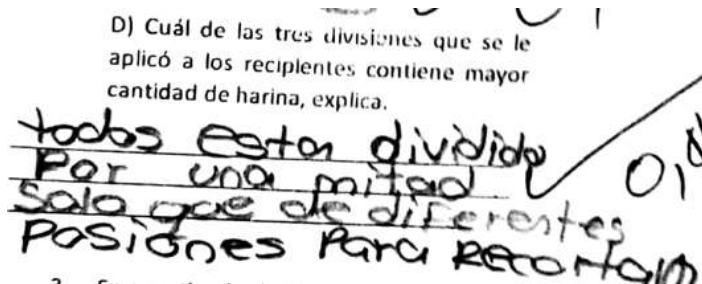 D) Cuál de las tres divisiones que se le
aplicó a los recipientes contiene mayor
cantidad de harina, explica.
todos estan dividido
Por una mitad
Solo que de diferentes
Posiones Para recortan